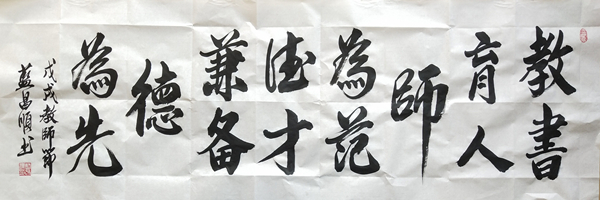 教書
育人
師
為范
法才
兼备
德
為先
戊戌教師節
藍昌順书